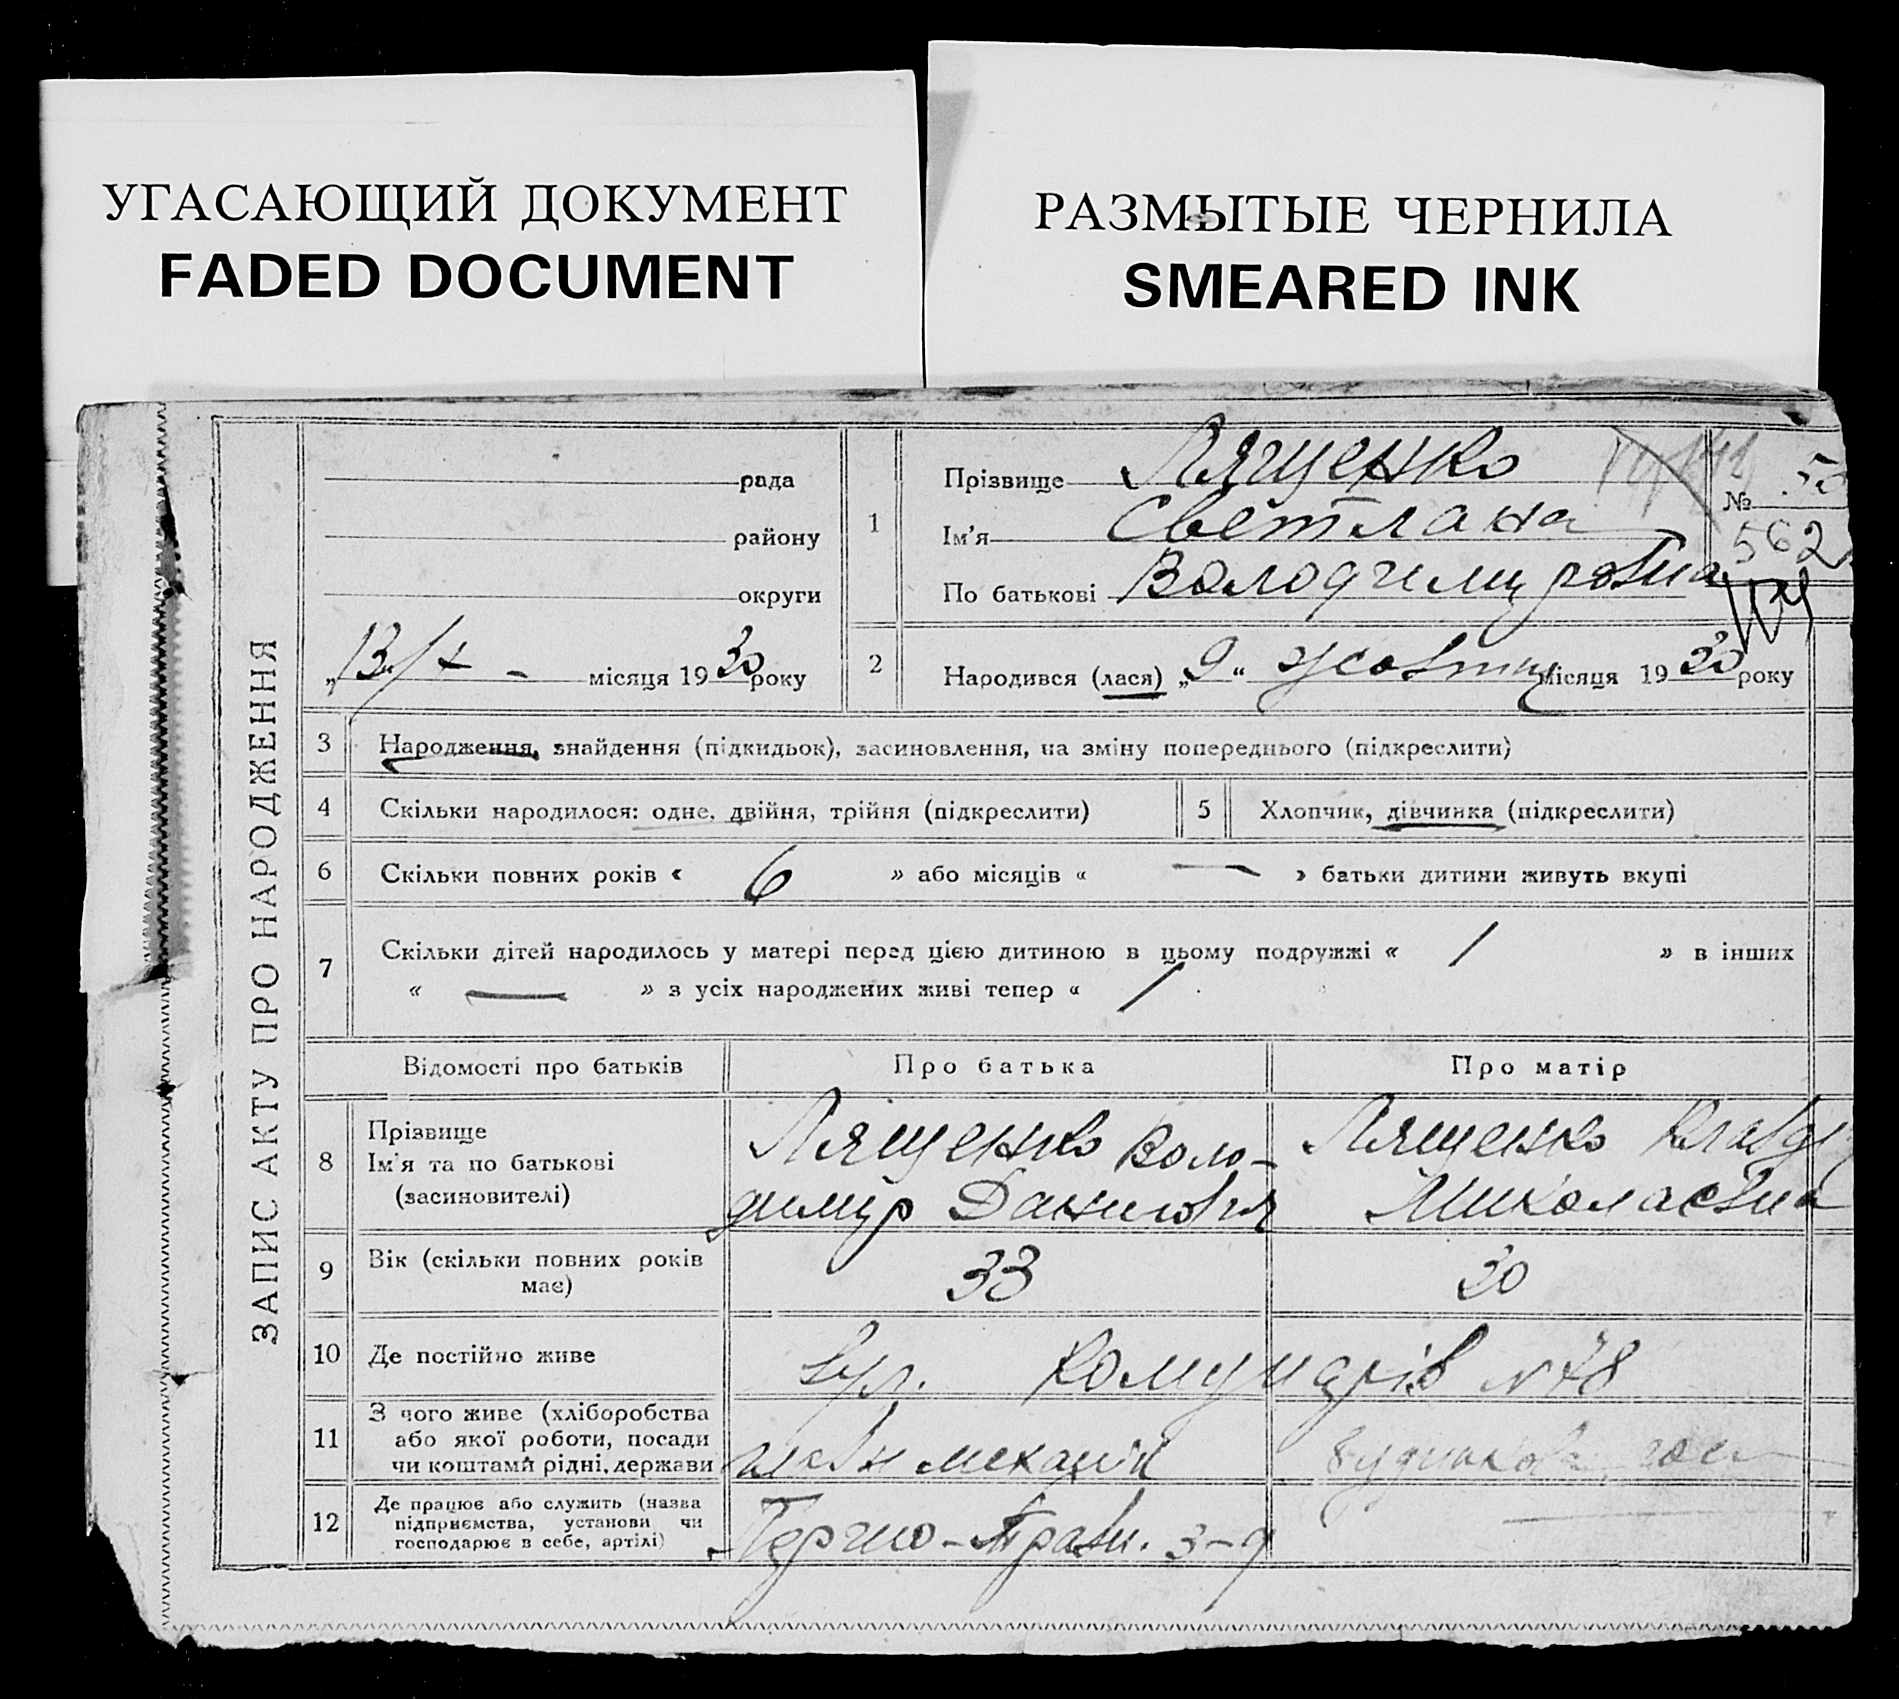 УГАСАЮЩИЙ ДОКУМЕНТ
FADED DOCUMENT
РАЗМЫТЫЕ ЧЕРНИЛА
SMEARED INK
ЗАПИС АКТУ ПРО НАРОДЖЕННЯ
рада
району
округи
„13/X - місяця 1930 року
1
Прізвище Лященко
Ім'я Светлана
По батькові Володимировна
№ 50
562
2
Народився (лася) „9“ жовтня місяця 1930 року
3 Народження, знайдення (підкидьок), засиновлення, на зміну попереднього (підкреслити)
4 Скільки народилося: одне, двійня, трійня (підкреслити)
5 Хлопчик, дівчинка (підкреслити)
6 Скільки повних років « 6 » або місяців « — » батьки дитини живуть вкупі
7 Скільки дітей народилось у матері перед цією дитиною в цьому подружжі « 1 » в інших
« — » з усіх народжених живі тепер « 1
Відомості про батьків Про батька Про матір
8 Прізвище
Ім'я та по батькові
(засиновителі)
Лященко Воло-
димир Данилович
Лященко Клавді
Миколаєвна
9 Вік (скільки повних років
має)
33 30
10 Де постійно живе вул. Комунарів №78
11 З чого живе (хліборобства
або якої роботи, посади
чи коштами рідні, держави
механік
12 Де працює або служить (назва
підприємства, установи чи
господарює в себе, артілі)